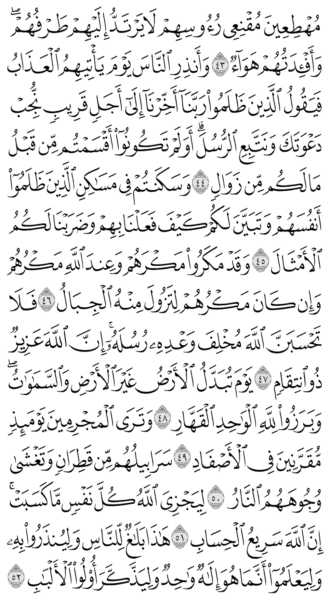 مُهْطِعِينَ مُقْنِعِى رُءُوسِهِمْ لَا يَرْتَدُّ إِلَيْهِمْ طَرْفُهُمْ ۖ
وَأَفْـِٔدَتُهُمْ هَوَآءٌ ٤٣ وَأَنذِرِ ٱلنَّاسَ يَوْمَ يَأْتِيهِمُ ٱلْعَذَابُ
فَيَقُولُ ٱلَّذِينَ ظَلَمُوا۟ رَبَّنَآ أَخِّرْنَآ إِلَىٰٓ أَجَلٍ قَرِيبٍ نُّجِبْ
دَعْوَتَكَ وَنَتَّبِعِ ٱلرُّسُلَ ۗ أَوَلَمْ تَكُونُوٓا۟ أَقْسَمْتُم مِّن قَبْلُ
مَا لَكُم مِّن زَوَالٍ ٤٤ وَسَكَنتُمْ فِى مَسَـٰكِنِ ٱلَّذِينَ ظَلَمُوٓا۟
أَنفُسَهُمْ وَتَبَيَّنَ لَكُمْ كَيْفَ فَعَلْنَا بِهِمْ وَضَرَبْنَا لَكُمُ
ٱلْأَمْثَالَ ٤٥ وَقَدْ مَكَرُوا۟ مَكْرَهُمْ وَعِندَ ٱللَّهِ مَكْرُهُمْ
وَإِن كَانَ مَكْرُهُمْ لِتَزُولَ مِنْهُ ٱلْجِبَالُ ٤٦ فَلَا
تَحْسَبَنَّ ٱللَّهَ مُخْلِفَ وَعْدِهِۦ رُسُلَهُۥٓ ۗ إِنَّ ٱللَّهَ عَزِيزٌ
ذُو ٱنتِقَامٍ ٤٧ يَوْمَ تُبَدَّلُ ٱلْأَرْضُ غَيْرَ ٱلْأَرْضِ وَٱلسَّمَـٰوَٰتُ ۖ
وَبَرَزُوا۟ لِلَّهِ ٱلْوَٰحِدِ ٱلْقَهَّارِ ٤٨ وَتَرَى ٱلْمُجْرِمِينَ يَوْمَئِذٍ
مُّقَرَّنِينَ فِى ٱلْأَصْفَادِ ٤٩ سَرَابِيلُهُم مِّن قَطِرَانٍ وَتَغْشَىٰ
وُجُوهَهُمُ ٱلنَّارُ ٥٠ لِيَجْزِىَ ٱللَّهُ كُلَّ نَفْسٍ مَّا كَسَبَتْ ۚ
إِنَّ ٱللَّهَ سَرِيعُ ٱلْحِسَابِ ٥١ هَـٰذَا بَلَـٰغٌ لِّلنَّاسِ وَلِيُنذَرُوا۟ بِهِۦ
وَلِيَعْلَمُوٓا۟ أَنَّمَا هُوَ إِلَـٰهٌ وَٰحِدٌ وَلِيَذَّكَّرَ أُو۟لُوا۟ ٱلْأَلْبَـٰبِ ٥٢